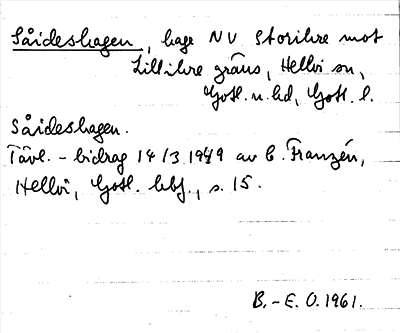 Såideshagen, hage NV Storihre mot
Lillihre gräns, Hellvi sn,
Gotl. n. hd, Gotl. l.
Såideshagen.
Tävl.-bidrag 14/3 1949 av B. Franzén,
Hellvi, Gotl. hbf., s. 15.
B.-E. O. 1961.